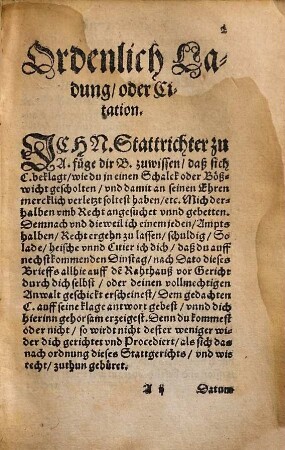 2
Ordenlich La-
dung/oder Ci-
tation.
ICH N. Stattrichter zu
A. füge dir B. zuwissen/ daß sich
C. beklagt/ wie du in einen Schalck oder Böß-
wicht gescholten / vnd damit an seinen Ehren
mercklich verletzt soltest haben/etc. Mich der-
halben vmb Recht angesucht vnnd gebetten.
Demnach vnd die weil ich einem jeden/ Ampts
halben/ Recht ergehn zu lassen/ schuldig/ So
lade/ heische vnnd Citier ich dich/ daß du auff
nechstkommenden Dinstag/ nach Dato dieses
Brieffs allhie auff dē Rahthauß vor Gericht
durch dich selbst/ oder deinen vollmechtigen
Anwalt geschickt erscheinest/ Dem gedachten
C. auff seine klage antwort gebest/ vnnd dich
hierinn gehorsam erzeigest. Denn du kommest
oder nicht/ so wirdt nicht dester weniger wi-
der dich gerichtet vnd Procediert/ als sich dan-
nach ordnung dieses Stattgerichts/ vnd wie
recht/ zuthun gebüret.
A ij Datum